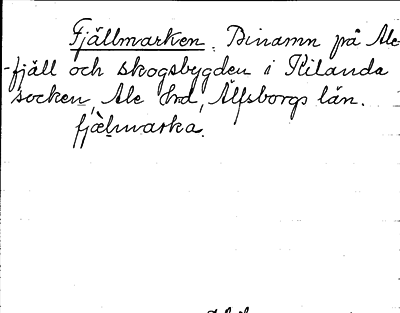 Fjällmarken. Binamn på Ale
-fjäll och skogsbygden i Kilanda
socken, Ale hd, Älfsborgs län.
fjælmarka.